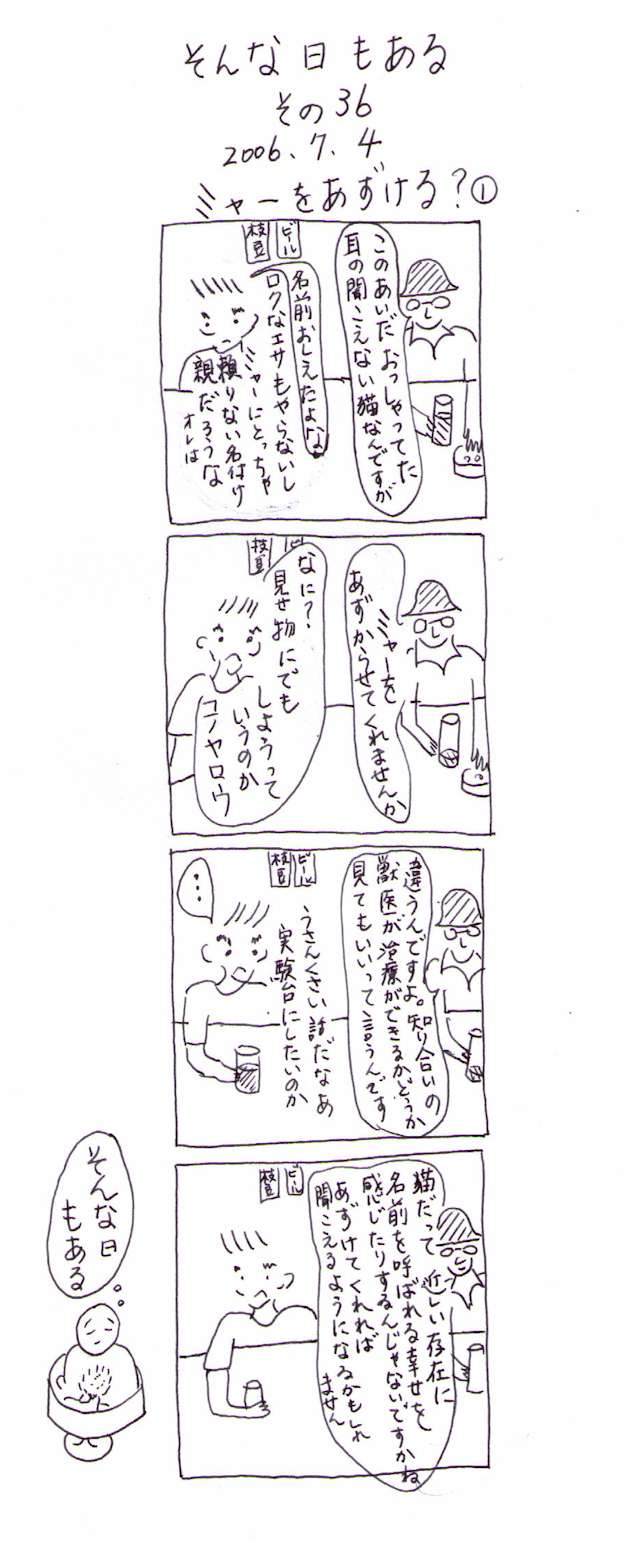 そんな日もある
その36
2006.7.4
ミャーをあずける?①
このあいだおっしゃってた
耳の聞こえない猫なんですが
ビール
枝豆
名前おしえたよなあ
ロクなエサもやらないし
ミャーにとっちゃ
頼りない名付け
親だろうな
オレは
ミャーを
あずからせてくれませんか
ビ
枝豆
なに?
見せ物にでも
しようって
いうのか
コノヤロウ
違うんですよ。知り合いの
獣医が治療ができるかどうか
見てもいいって言うんです
ビール
枝豆
うさんくさい話だなあ
実験台にしたいのか
…
猫だって近しい存在に
名前を呼ばれる幸せを
感じたりするんじゃないですかね
あずけてくれれば
聞こえるようになるかもしれ
ません
ビール
枝豆
そんな日
もある